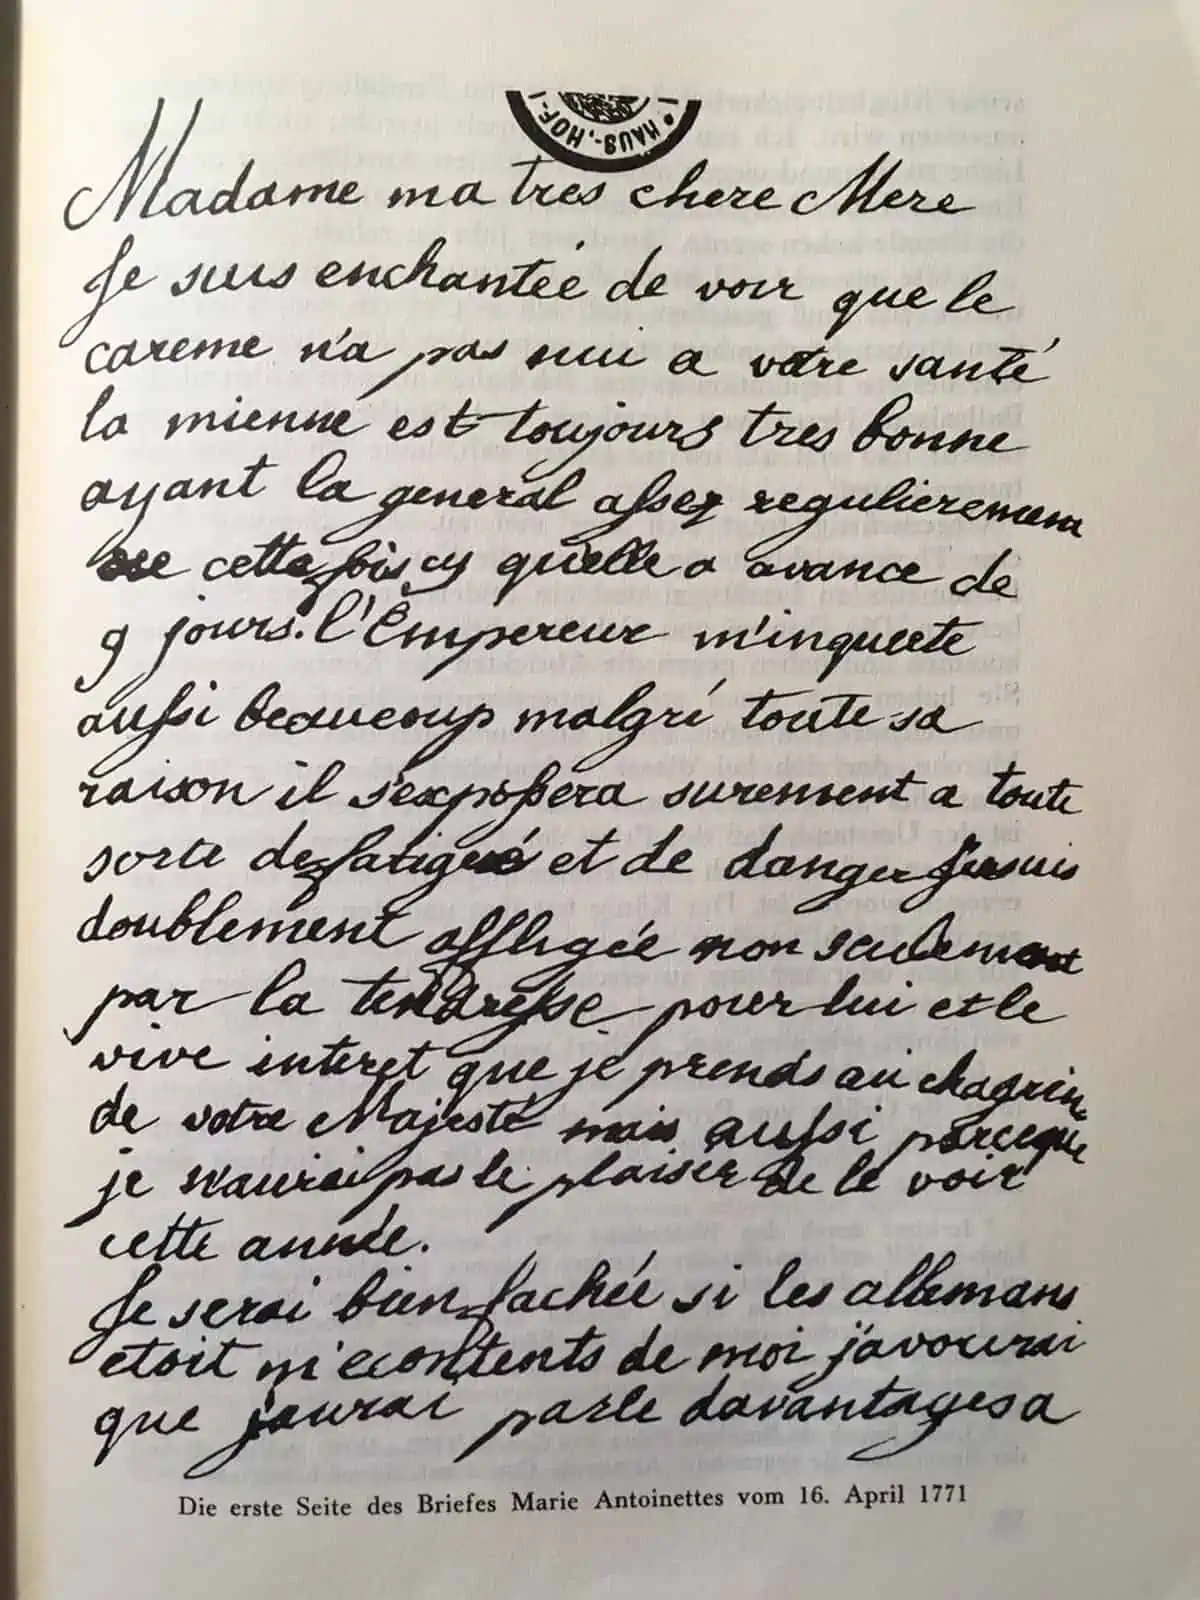 HAUS-, HOF-
Madame ma tres chere Mere
Je suis enchantée de voir que le
careme n'a pas nui a votre santé
la mienne est toujours tres bonne
ayant la general assez regulierement
cette fois cy quelle a avance de
9 jours. l'Empereur m'inquiete
aussi beaucoup malgré toute sa
raison il s'exposera surement a toute
sorte de fatigue et de danger je suis
doublement affligée non seulement
par la tendresse pour lui et le
vive interet que je prends au chagrin
de votre Majesté mais aussi parceque
je n'aurai pas le plaisir de le voir
cette année.
Je serai bien fachée si les allemans
etoit m'econtents de moi j'avourai
que j'aurai parle davantages a
Die erste Seite des Briefes Marie Antoinettes vom 16. April 1771